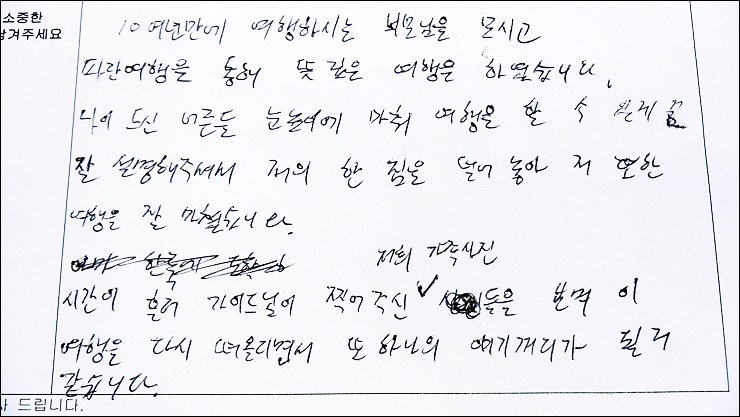 소중한
남겨주세요
10여년만에 여행하시는 부모님을 모시고
파란여행을 통해 뜻깊은 여행을 하였습니다.
나이 드신 어른들 눈높이에 맞춰 여행을 할 수
잘 설명해주셔서 저의 한 짐을 덜어 놓아 저 또한
여행을 잘 마쳤습니다.
저희 가족사진
시간이 흘러 가이드님이 찍어주신 ✓ 들을 보며 이
여행을 다시 떠올리면서 또 하나의 얘기꺼리가 될 거
같습니다.
사 드립니다.